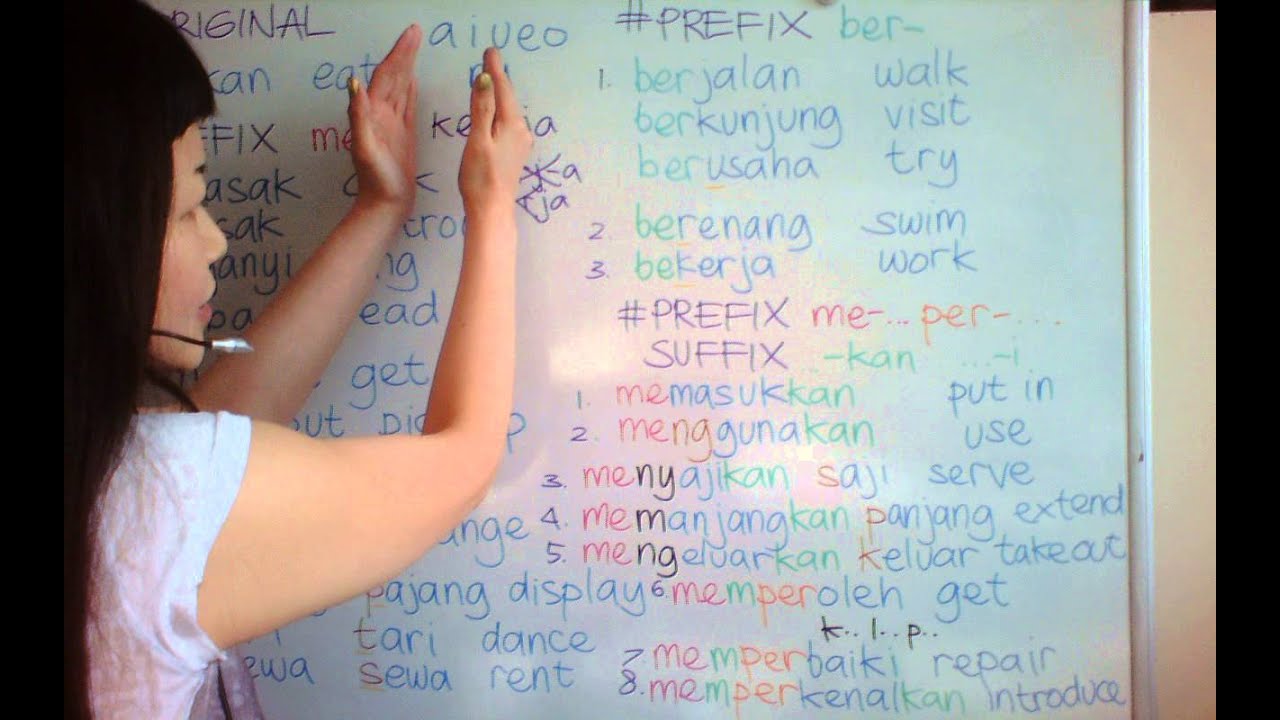 RIGINAL a i u e o
kan eat
EFIX me
asak
sak
anyi
ead
get
out
ange
pajang display
tari dance
ewa sewa rent
#PREFIX ber-
1. berjalan walk
berkunjung visit
berusaha try
2. berenang swim
3. bekerja work
#PREFIX me-... per-...
SUFFIX -kan ...-i
1. memasukkan put in
2. menggunakan use
3. menyajikan saji serve
4. memanjangkan panjang extend
5. mengeluarkan keluar takeout
6. memperoleh get
k.. l.. p..
7. memperbaiki repair
8. memperkenalkan introduce